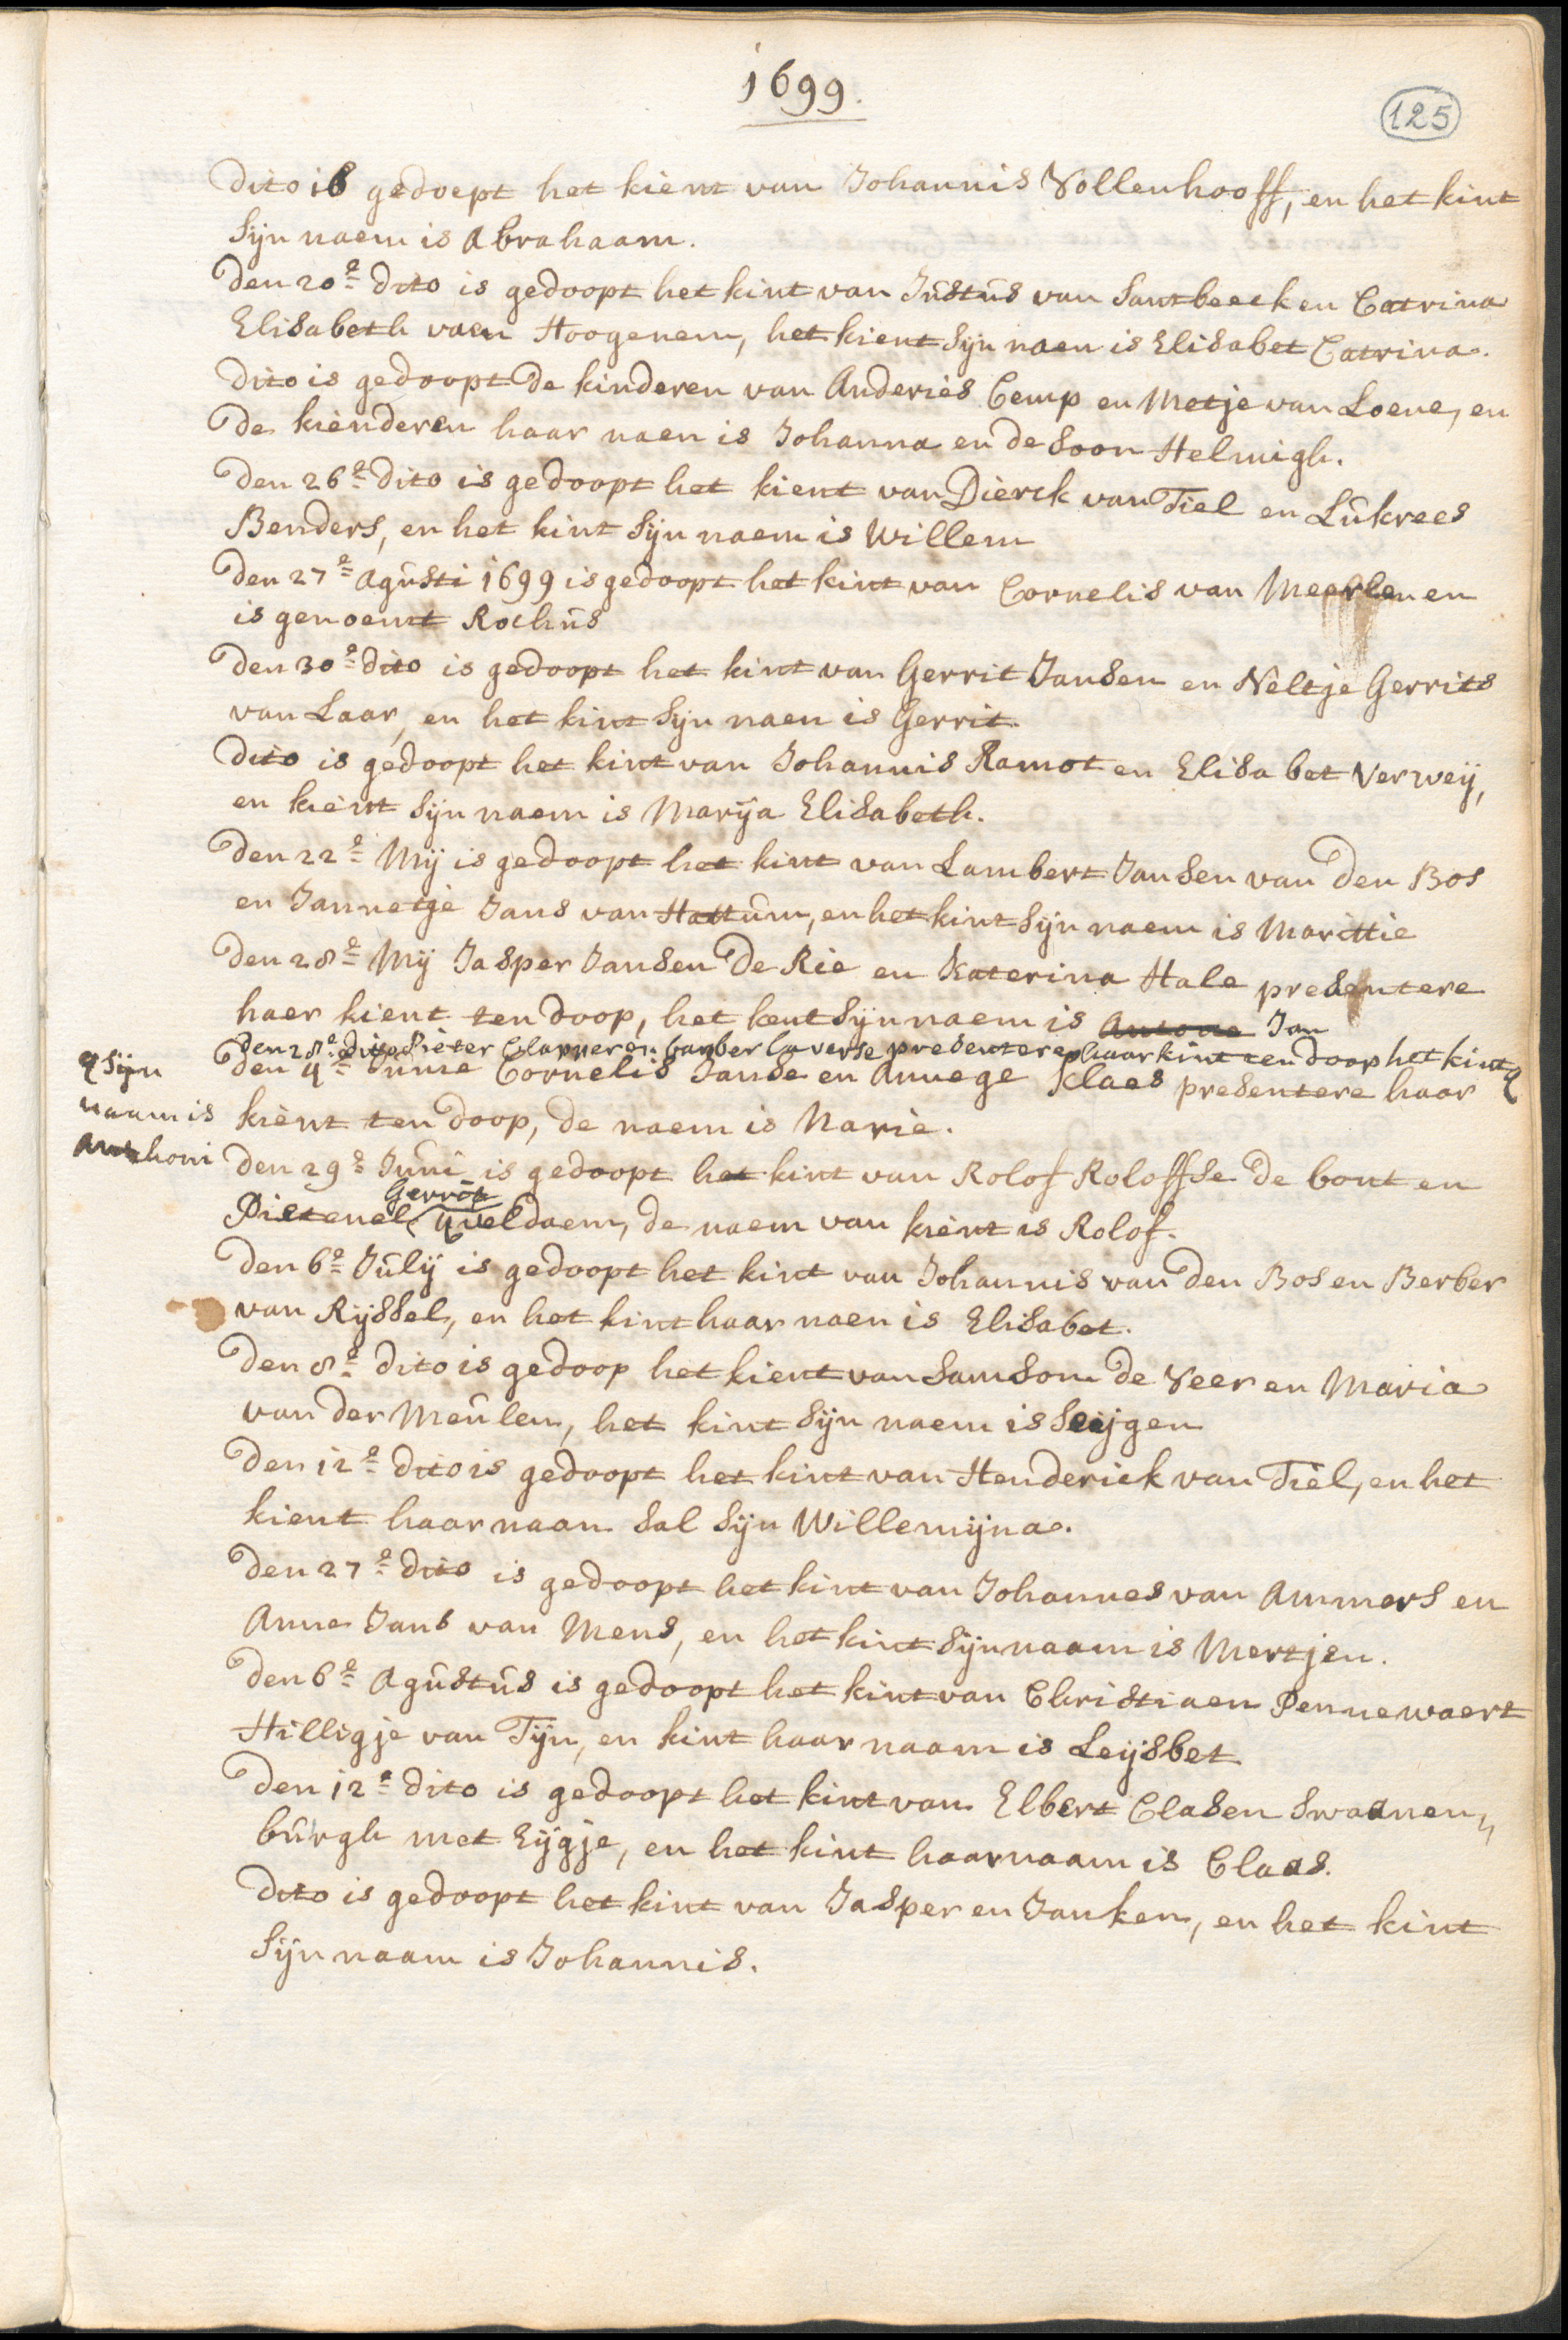 1699.
125
Dito is gedoept het kient van Johannis Vollenhooff, en het kint
sijn naem is Abrahaam.
Den 20e dito is gedoopt het kint van Justus van Santbeeck en Catrina
Elisabeth vaen Hoogenem, het kient sijn naen is Elisabet Catrina.
Dito is gedoopt de kinderen van Anderies Cemp en Metje van Loene, en
de kienderen haar naen is Johanna en de soon Helmigh.
Den 26e dito is gedoopt het kient van Dierck van Tiel en Lukrees
Benders, en het kint sijn naem is Willem
Den 27e Agusti 1699 is gedoopt het kint van Cornelis van Meerlen en
is genoemt Rochus
Den 30e dito is gedoopt het kint van Gerrit Jansen en Neltje Gerrits
van Laar, en het kint sijn naen is Gerrit.
Dito is gedoopt het kint van Johannis Ramot en Elisabet Verweij,
en kient sijn naem is Marija Elisabeth.
Den 22e Mij is gedoopt het kint van Lambert Jansen van den Bos
en Jannetje Jans van Hattum, en het kint sijn naem is Marittie
Den 28e Mij Jasper Jansen de Rie en Katerina Hale presentere
haer kient ten doop, het kent sijn naem is Antone Jan
Den 28e dito Pieter Clapper en barber laverse presentere haar kint ten doop het kint
sijn
naam is
Anthoni
Den 4e Junie Cornelis Janse en Annege Klaes presentere haar
kient ten doop, de naem is Marie.
Den 29e Juni is gedoopt het kint van Rolof Roloffse de bont en
Gerrit
Pietenel Queldaem, de naem van kient is Rolof.
Den 6e Julij is gedoopt het kint van Johannis van den Bos en Berber
van Rijssel, en het kint haar naen is Elisabet.
Den 8e dito is gedoop het kient van Samsom de Veer en Maria
van der Meulen, het kint sijn naem is Seijgen
Den 12e dito is gedoopt het kint van Henderick van Tiel, en het
kient haar naan sal sijn Willemijna.
Den 27e dito is gedoopt het kint van Johannes van Ammers en
Anne Jans van Mens, en het kint sijn naam is Mertjen.
Den 6e Agustus is gedoopt het kint van Christiaen Pennewaert
Hilligje van Tijn, en kint haar naam is Leijsbet
Den 12e dito is gedoopt het kint van Elbert Clasen Swaanen„
burgh met Eijgje, en het kint haar naam is Claas.
Dito is gedoopt het kint van Jasper en Janken, en het kint
sijn naam is Johannis.